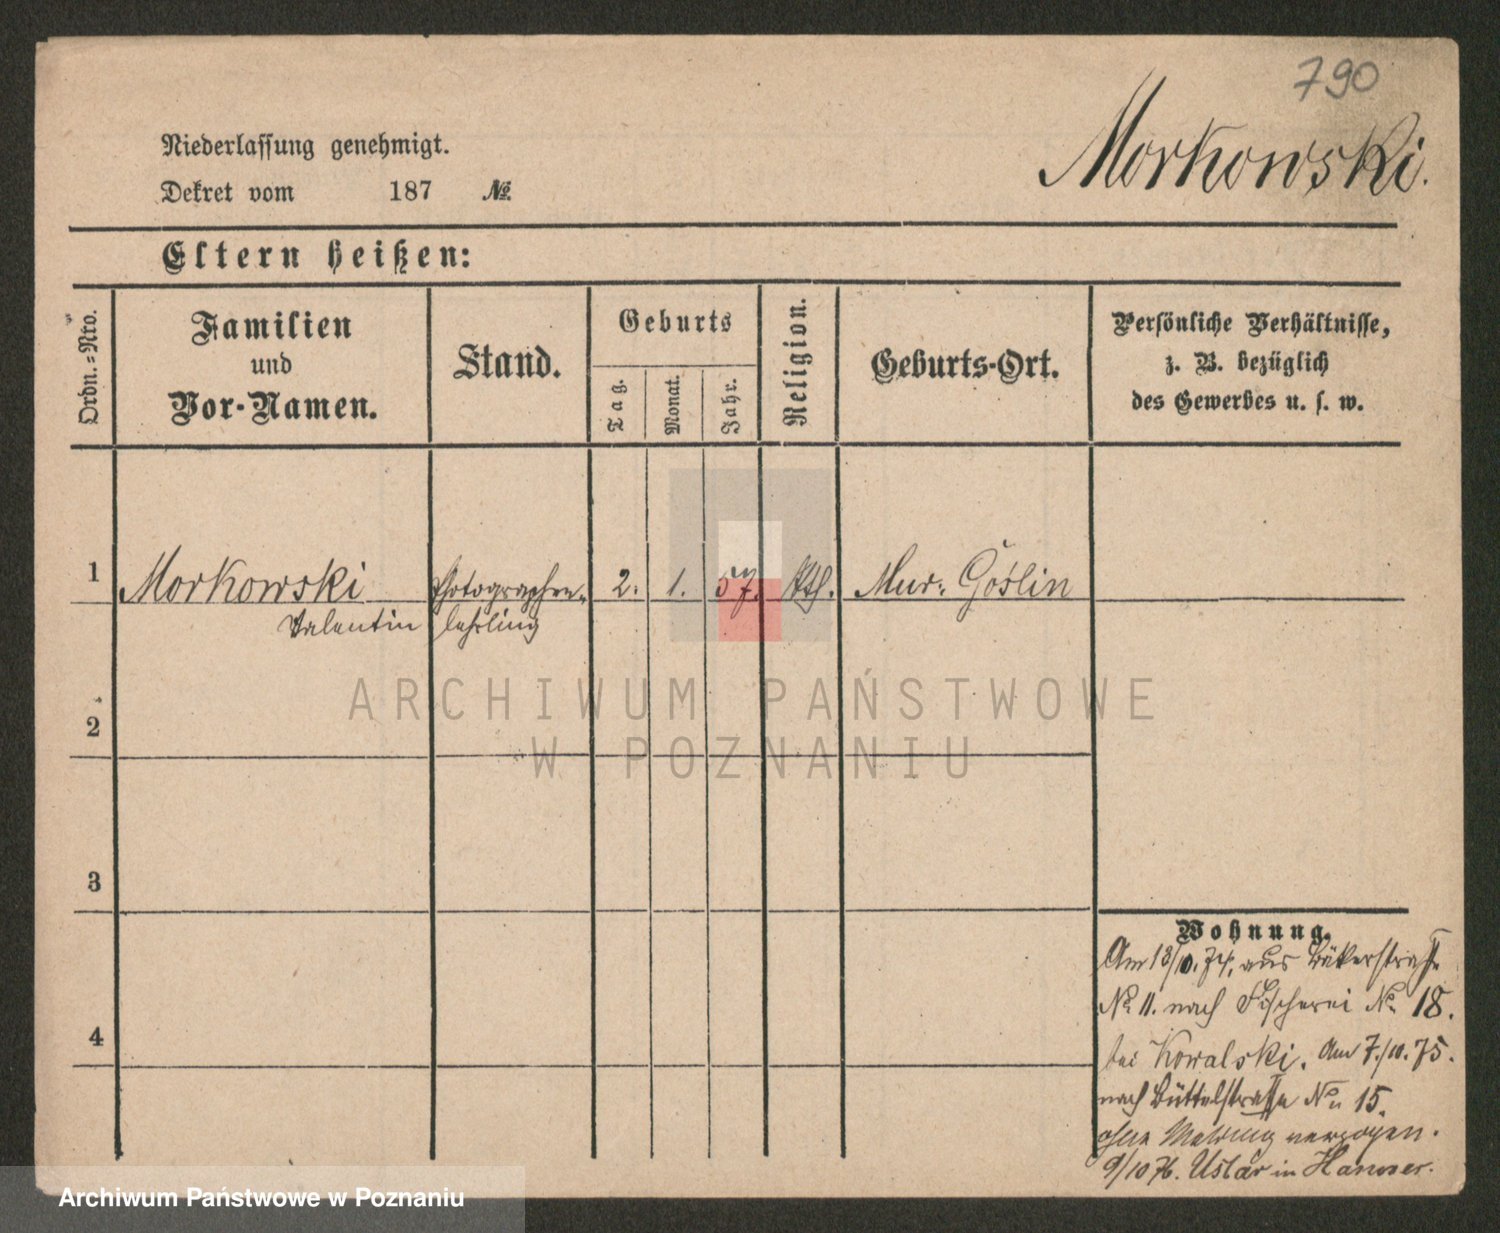 790
Morkowski.
Niederlassung genehmigt.
Dekret vom 187 №
Eltern heißen:
Ordn.=Nro.
Familien
und
Vor-Namen.
Stand.
Geburts
Tag.
Monat.
Jahr.
Religion.
Geburts-Ort.
Persönliche Verhältnisse,
z. B. bezüglich
des Gewerbes u. s. w.
1 Morkowski Photographen- 2. 1. 57. kth. Mur: Goślin
Valentin lehrling
2
3
4
ARCHIWUM PAŃSTWOWE
W POZNANIU
Wohnung.
Am 13/10. 74. aus Bäkerstraße
No 11. nach Fischerei No 18.
bei Kowalski. Am 7./10. 75.
nach Büttelstrasse No 15.
ohne Meldung verzogen.
9/10 76. Uslar in Hanover.
Archiwum Państwowe w Poznaniu